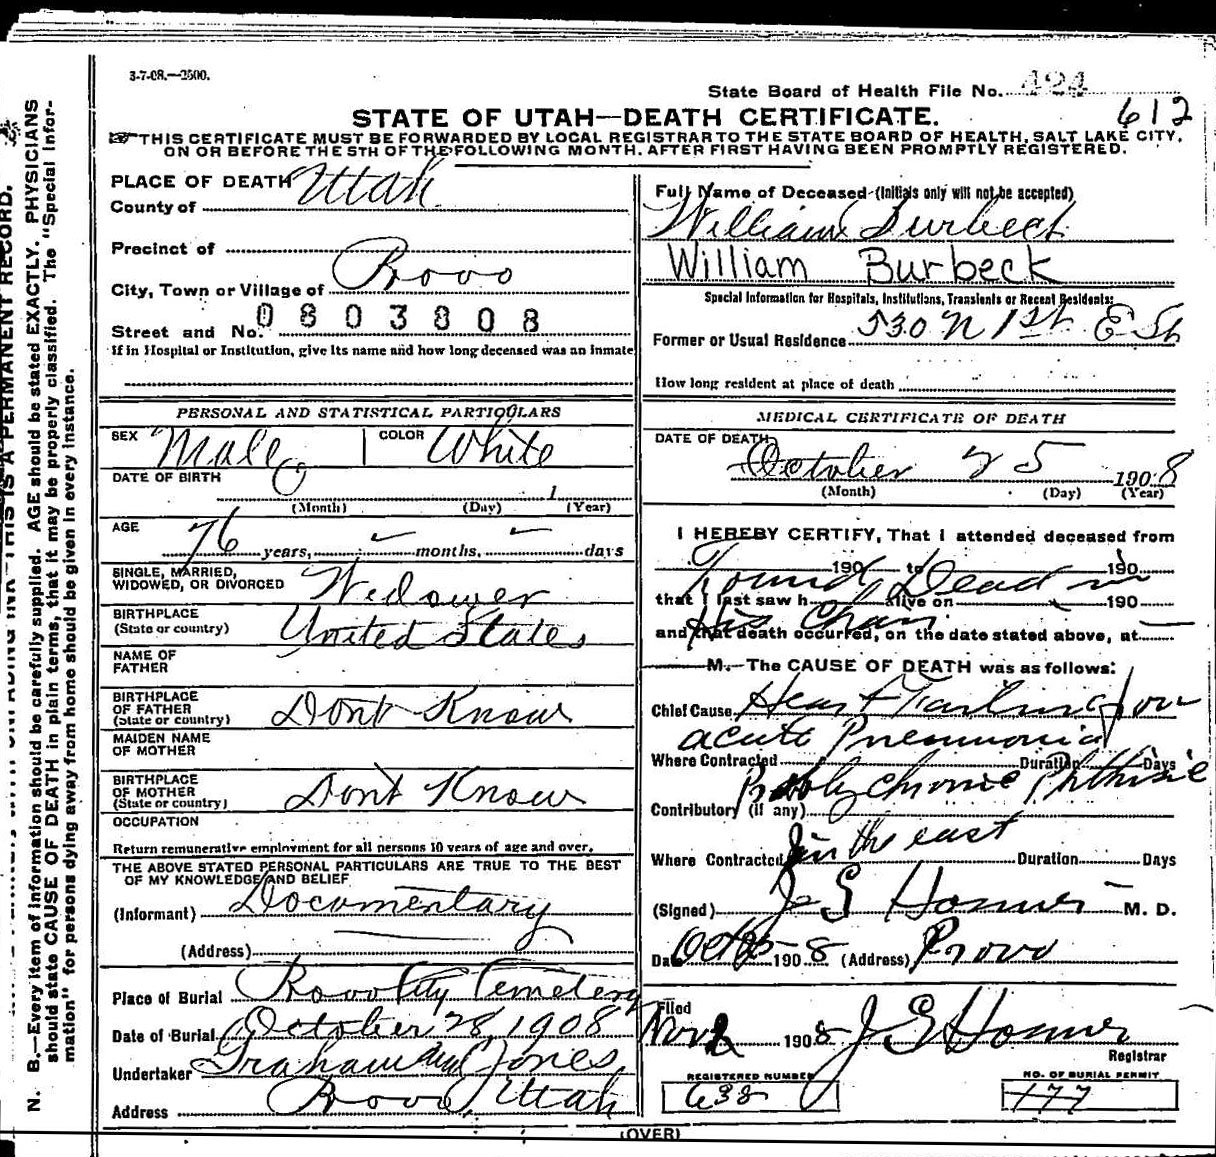 3-7-08.—2500.
State Board of Health File No. 424
612
STATE OF UTAH—DEATH CERTIFICATE.
THIS CERTIFICATE MUST BE FORWARDED BY LOCAL REGISTRAR TO THE STATE BOARD OF HEALTH, SALT LAKE CITY,
ON OR BEFORE THE 5TH OF THE FOLLOWING MONTH, AFTER FIRST HAVING BEEN PROMPTLY REGISTERED.
PLACE OF DEATH
County of Utah
Precinct of
City, Town or Village of Provo
Street and No. 0803808
If in Hospital or Institution, give its name and how long deceased was an inmate
PERSONAL AND STATISTICAL PARTICULARS
SEX Male COLOR White
DATE OF BIRTH
1
(Month) (Day) (Year)
AGE
76 years, – months, – days
SINGLE, MARRIED,
WIDOWED, OR DIVORCED Widower
BIRTHPLACE
(State or country) United States
NAME OF
FATHER
BIRTHPLACE
OF FATHER
(State or country) Dont Know
MAIDEN NAME
OF MOTHER
BIRTHPLACE
OF MOTHER
(State or country) Dont Know
OCCUPATION
Return remunerative employment for all persons 10 years of age and over.
THE ABOVE STATED PERSONAL PARTICULARS ARE TRUE TO THE BEST
OF MY KNOWLEDGE AND BELIEF
(Informant) Documentary
(Address)
Place of Burial Provo City Cemetery
Date of Burial October 28, 1908
Undertaker Graham and Jones
Address Provo, Utah
Full Name of Deceased (Initials only will not be accepted)
William Burbeck
William Burbeck
Special Information for Hospitals, Institutions, Transients or Recent Residents:
Former or Usual Residence 530 N 1st E St
How long resident at place of death
MEDICAL CERTIFICATE OF DEATH
DATE OF DEATH
October 25 1908
(Month) (Day) (Year)
I HEREBY CERTIFY, That I attended deceased from
Found Dead in
190 to 190
that I last saw h alive on 190
His Chair
and that death occurred, on the date stated above, at
M. The CAUSE OF DEATH was as follows:
Chief Cause Heart Failure from
acute Pneumonia
Where Contracted Duration Days
Probably chronic Phthisic
Contributory (if any)
in the east
Where Contracted Duration Days
(Signed) M. D.
Date Oct 25 1908 (Address) Provo
Filed
Nov 2 1908
Registrar
REGISTERED NUMBER
638
NO. OF BURIAL PERMIT
177
(OVER)
N. B.—Every item of information should be carefully supplied. AGE should be stated EXACTLY. PHYSICIANS
should state CAUSE OF DEATH in plain terms, that it may be properly classified. The "Special Infor-
mation" for persons dying away from home should be given in every instance.
THIS IS A PERMANENT RECORD.